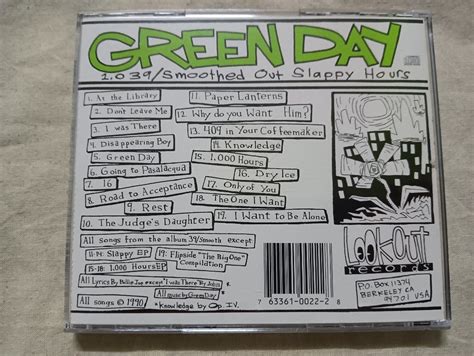 GREEN DAY
1,039/Smoothed Out Slappy Hours
1. At the Library
2. Don't Leave Me
3. I was There
4. Disappearing Boy
5. Green Day
6. Going to Pasalacqua
7. 16
8. Road to Acceptance
9. Rest
10. The Judge's Daughter
11. Paper Lanterns
12. Why do you Want Him?
13. 409 in Your Coffeemaker
14. Knowledge
15. 1,000 Hours
16. Dry Ice
17. Only of You
18. The One I Want
19. I Want to Be Alone
All songs from the album 39/Smooth except:
11-14: Slappy EP
15-18: 1,000 Hours EP
19: Flipside "The Big One" Compilation
All Lyrics By Billie Joe except 'I was There' By John
All music by Green Day
*Knowledge by Op. I.V.
All songs © 1990
7 63361-0022-2 8
Lookout
records
P.O. Box 11374
BERKELEY CA
94701 USA